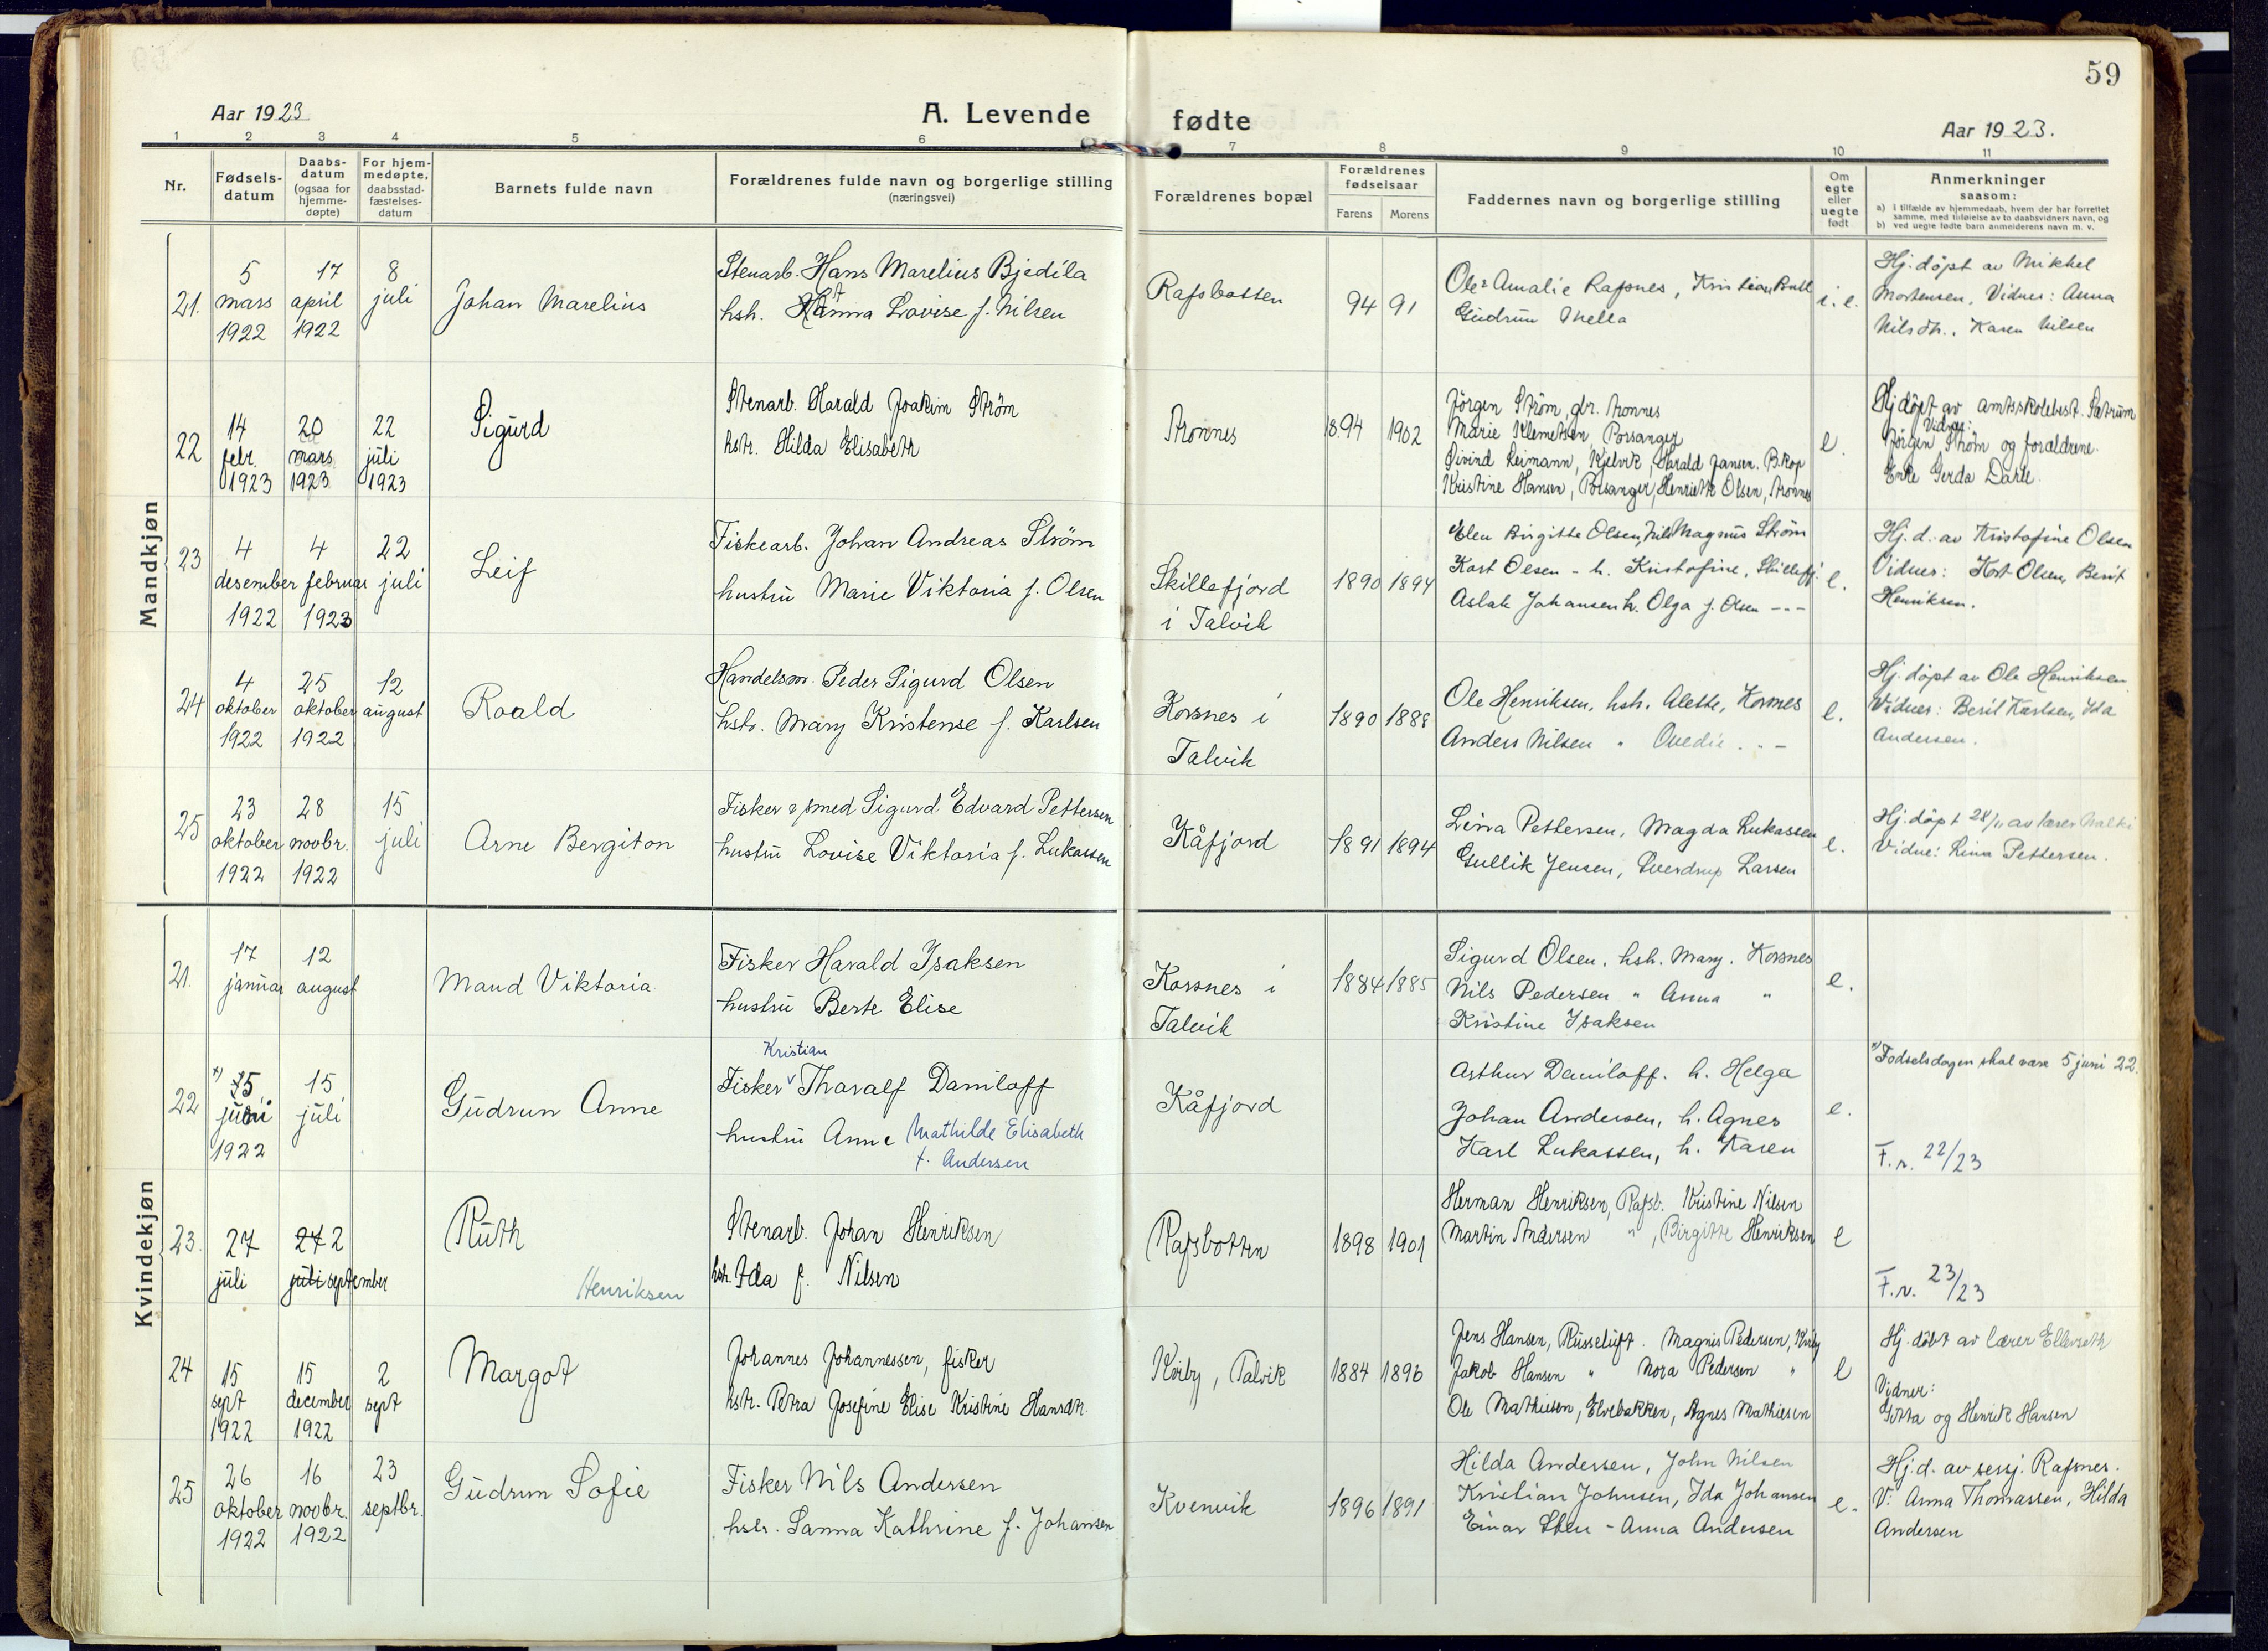 59
Aar 1923
A. Levende
fødte
Aar 1923.
1 2 3 4 5 6 7 8 9 10 11
Nr.
Fødsels-
datum
Daabs-
datum
(ogsaa for
hjemme-
døpte)
For hjem-
medøpte,
daabsstad-
fæstelses-
datum
Barnets fulde navn
Forældrenes fulde navn og borgerlige stilling
(næringsvei)
Forældrenes bopæl
Forældrenes
fødselsaar
Farens Morens
Faddernes navn og borgerlige stilling
Om
egte
eller
uegte
født
Anmerkninger
saasom:
a) i tilfælde av hjemmedaab, hvem der har forrettet
samme, med tilføielse av to daabsvidners navn, og
b) ved uegte fødte barn anmelderens navn m. v.
Mandkjøn
21.
5
mars
1922
17
april
1922
8
juli
Johan Marelius
Stenarb. Hans Marelius Bjedila
hsh. Hanna Lovise f. Nilsen
Rafsbotten
94 91
Ole & Amalie Rafsnes, Kristian
Gudrun Thella
Hj. døpt av Mikkel
Mortensen, Vidner: Anna
Nilsdtr., Karen Nilsen
22
14
febr.
1923
20
mars
1923
22
juli
1923
Sigurd
Stenarb. Harald Joakim Strøm
hstr. Hilda Elisabeth
1894 1902
Jörgen Strøm, gbr.
Marie Klemetsen, Porsanger
Øivind Reimann, Kjelvik, Harald Jansen. B.kop
Kristine Hansen, Porsanger, Henriette Olsen,
e.
Hj døpt av amtsskolebest. Satrum
Vidner:
Jörgen Strøm og forældrene.
Enke Gerda
23
4
desember
1922
4
februar
1923
22
juli
Leif
Fiskearb. Johan Andreas Strøm
hustru Marie Viktoria f. Olsen
Skillefjord
i Talvik
1890 1894
Elen Birgitte Olsen, Nils Magnus Strøm
Kort Olsen - h. Kristofine, Skillefj.
Aslak Johansen h. Olga f. Olsen - - -
e.
Hj. d. av Kristofine Olsen
Vidner: Kort Olsen, Berit
Henriksen.
24
4
oktober
1922
25
oktober
1922
12
august
Roald
Handelsm. Peder Sigurd Olsen
hstr. Mary Kristense f. Karlsen
Korsnes i
Talvik
1890 1888
Ole Henriksen, hsh. Alette, Korsnes
Anders Nilsen " Ovedie . . -
e.
Hj. døpt av Ole Henriksen
Vidner: Berit Karlsen, Ida
Andersen.
25
23
oktober
1922
28
novbr.
1922
15
juli
Arne Bergiton
Fisker & smed Sigurd Edvard Pettersen
hustru Lovise Viktoria f. Lukassen
Kåfjord
1891 1894
Lina Pettersen, Magda Lukassen
Gullik Jensen, Sverdrup Larsen
e.
Hj. døpt 28/11 av lærer
Vidne: Lina Pettersen.
Kvindekjøn
21.
17
januar
12
august
Maud Viktoria
Fisker Harald Isaksen
hustru Berte Elise
Korsnes i
Talvik
1884 1885
Sigurd Olsen, hsh. Mary. Korsnes
Nils Pedersen " Anna "
Kristine Isaksen
e.
22
x) 5
juni
1922
15
juli
Gudrun Anne
Kristian
Fisker v Tharalf Daniloff
hustru Anne Mathilde Elisabeth
f. Andersen
Kåfjord
Arthur Daniloff. h. Helga
Johan Andersen, h. Agnes
Karl Lukassen, h. Karen
e.
x) Fødselsdagen skal være 5 juni 22.
F. r. 22/23
23.
27
juli
27 2
juli september
Ruth
Henriksen
Stenarb. Johan Henriksen
hsh. Ida f. Nilsen
Rafsbotten
1898 1901
Herman Henriksen, Rafsb. Kristine Nilsen
Martin Andersen " , Birgitte Henriksen
e
F. r. 23/23
24
15
sept
1922
15
december
1922
2
sept
Margot
Johannes Johannessen, fisker
hstr. Petra Josefine Elise Kristine Hansdtr.
Kviby, Talvik
1884 1896
Jens Hansen, Russeluft. Magnus Pedersen, Kviby
Jakob Hansen " Nora Pedersen "
Ole Mathisen, Elvebakken, Agnes Mathisen
e
Hj. døbt av lærer Elleseth
Vidner:
Gitta og Henrik Hansen
25
26
oktober
1922
16
novbr.
1922
23
septbr.
Gudrun Sofie
Fisker Nils Andersen
hstr. Sanna Kathrine f. Johansen
Kvenvik
1896 1891
Hilda Andersen, John Nilsen
Kristian Johnsen, Ida Johansen
Einar Sten - Anna Andersen
e.
Hj. d. av sersj. Rafsnes.
V: Anna Thomassen, Hilda
Andersen